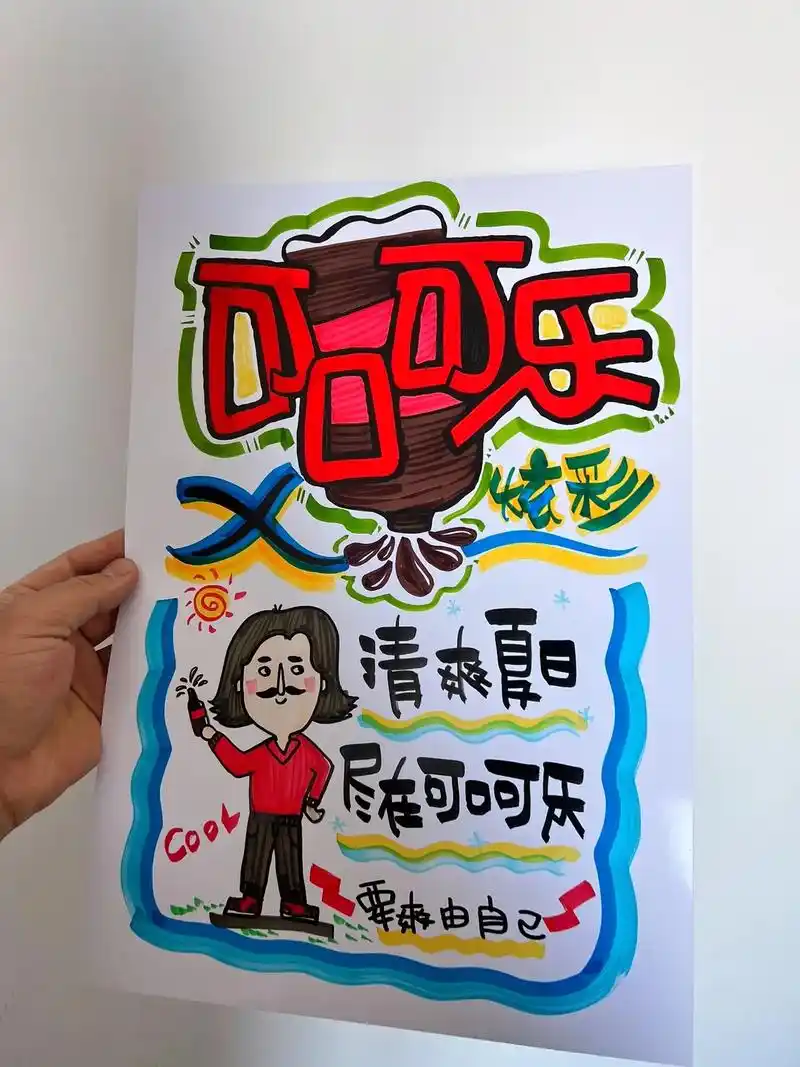 可口可乐
X 炫彩
清爽夏日
尽在可口可乐
COOL
要爽由自己